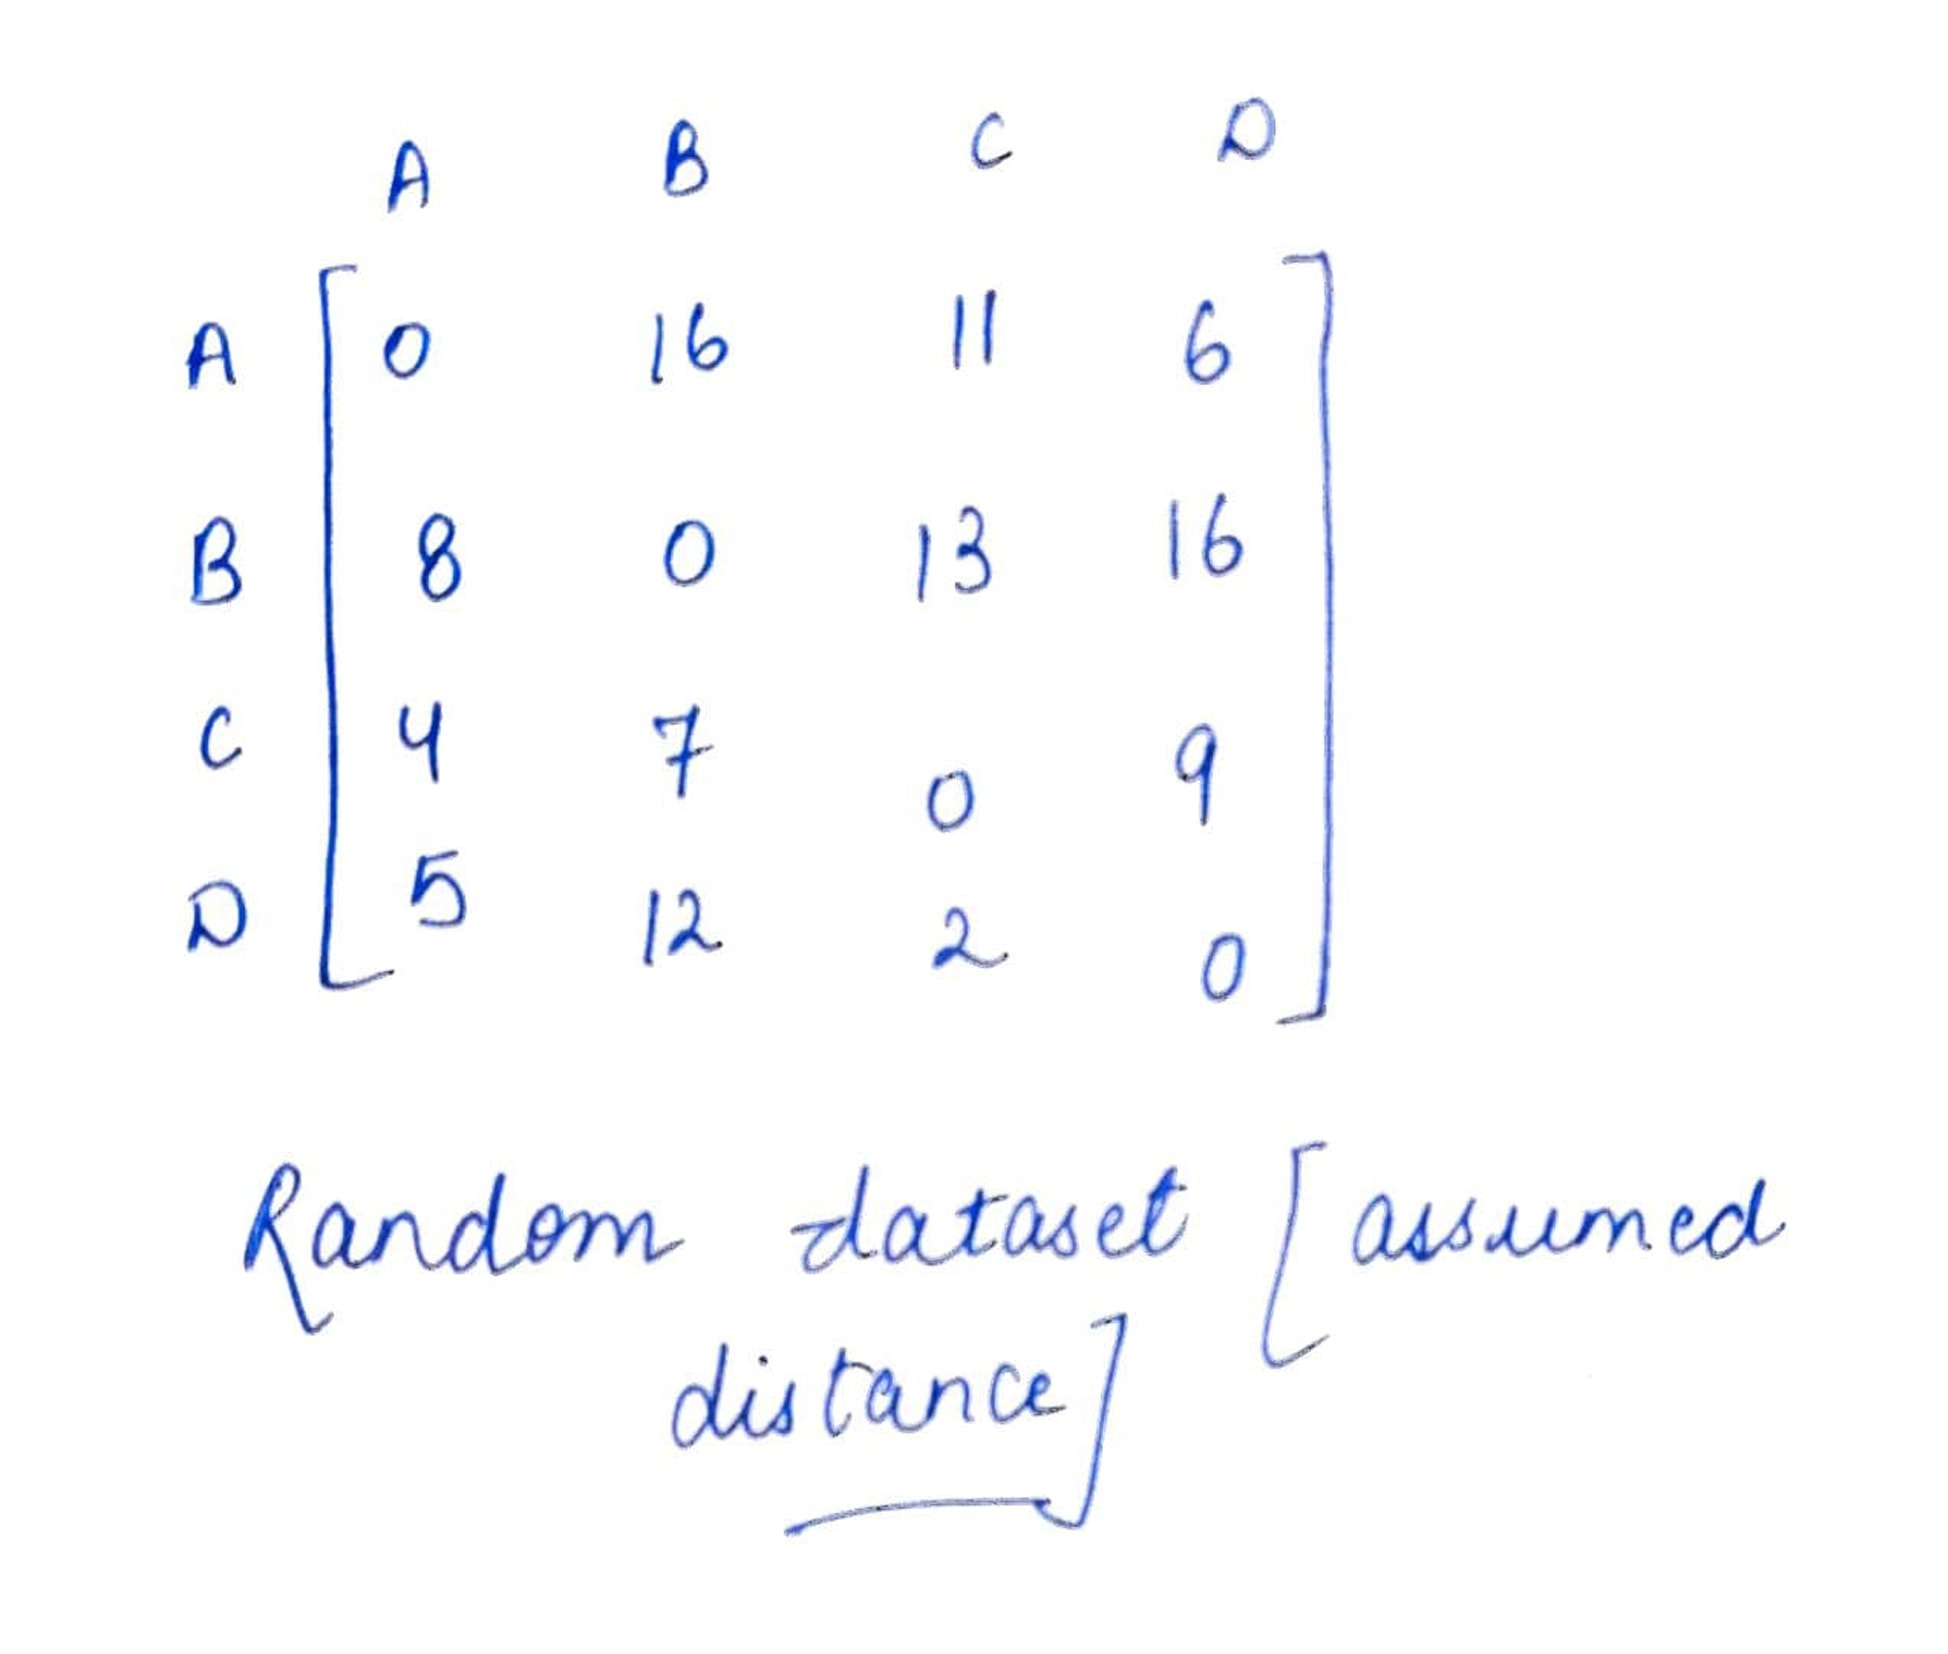 A B C D
A 0 16 11 6
B 8 0 13 16
C 4 7 0 9
D 5 12 2 0
Random dataset [assumed
distance]